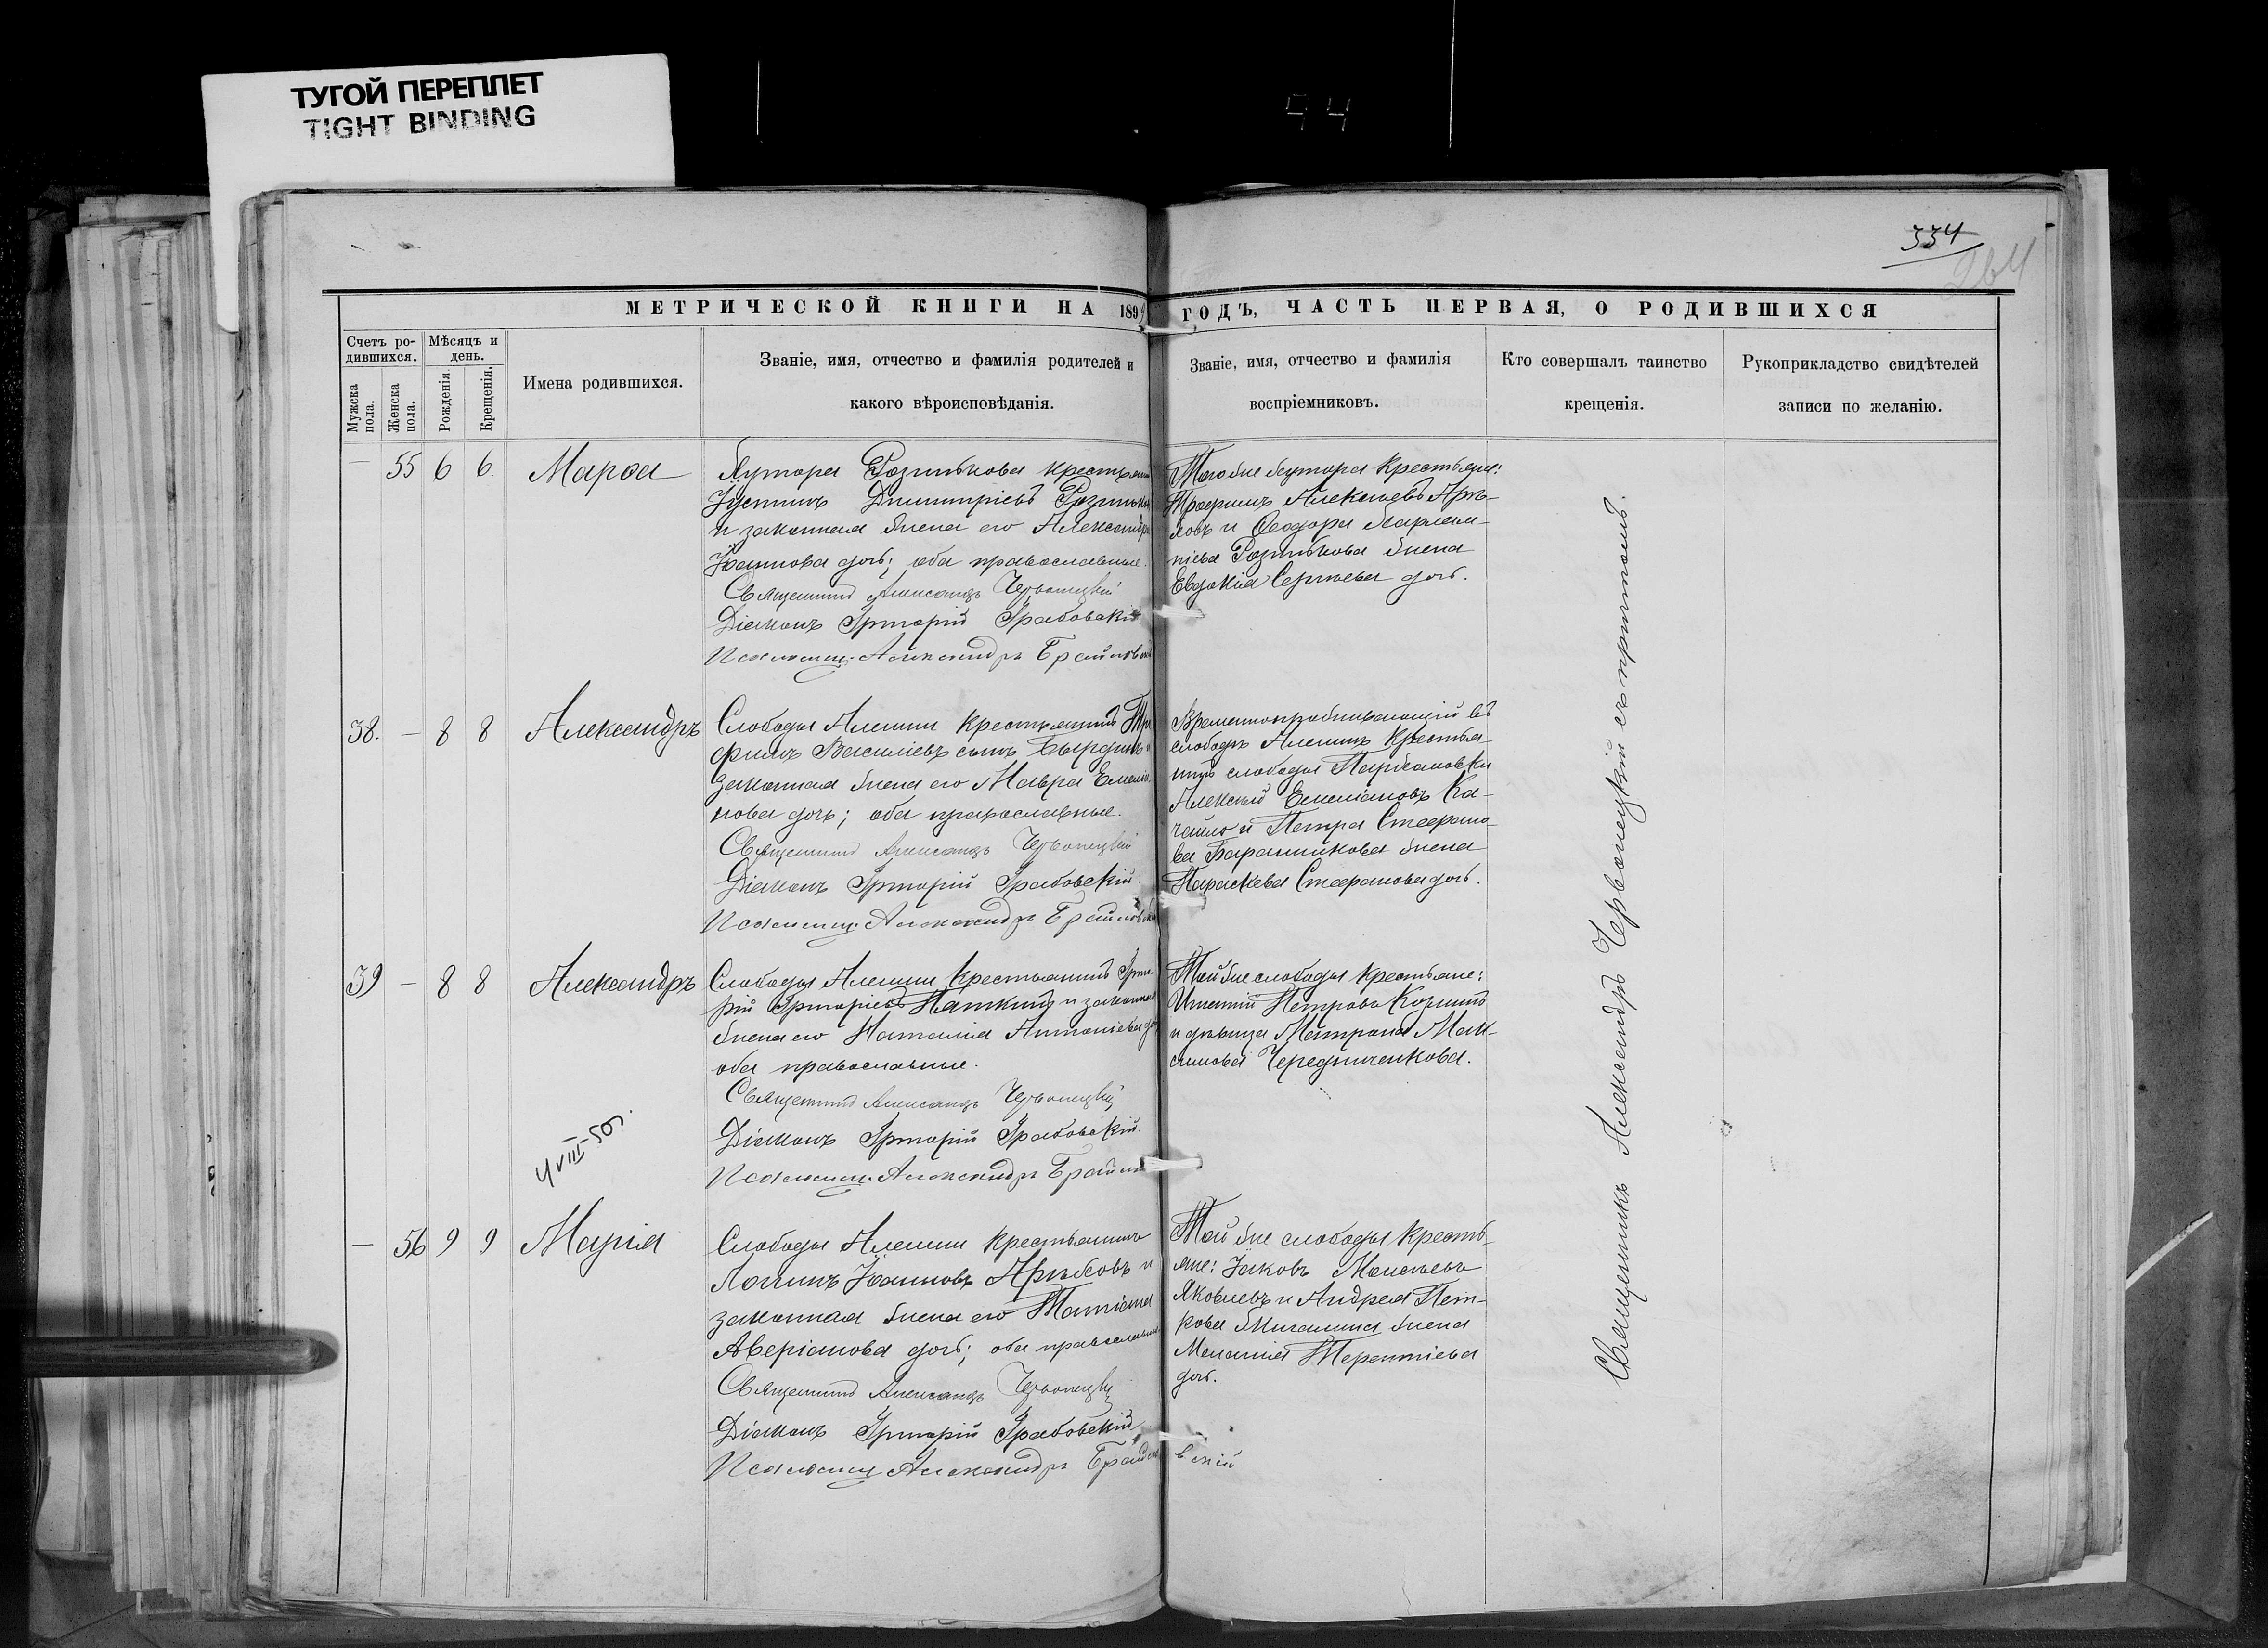 ТУГОЙ ПЕРЕПЛЕТ
TIGHT BINDING
44
334
264
МЕТРИЧЕСКОЙ КНИГИ НА 189 ГОДЪ, ЧАСТЬ ПЕРВАЯ, О РОДИВШИХСЯ
Счетъ ро-
дившихся.
Мѣсяцъ и
день.
Мужска
пола.
Женска
пола.
Рожденія.
Крещенія.
Имена родившихся.
Званіе, имя, отчество и фамилія родителей и
какого вѣроисповѣданія.
Званіе, имя, отчество и фамилія
воспріемниковъ.
Кто совершалъ таинство
крещенія.
Рукоприкладство свидѣтелей
записи по желанію.
— 55 6 6. Марѳа
Хутора
Іустинъ Димитріевъ
и законная жена его Александра
Іоаннова дочь; оба православные.
Священникъ Александръ Червонецкій
Діаконъ Григорій Грабовскій
Псаломщ. Александръ
Того же хутора крестьяне:
Трофимъ Алексѣевъ
и Ѳеодора
жена
Евдокія Сергѣева дочь.
38. — 8 8 Александръ
Слободы Алешки крестьянинъ
Василіевъ сынъ
законная жена его Мавра
нова дочь; оба православные.
Священникъ Александръ Червонецкій
Діаконъ Григорій Грабовскій.
Псаломщ. Александръ
Временнопроживающій въ
слободѣ Алешкѣ крестья-
нинъ слободы
Алексѣй Емеліановъ Ка-
и Петра Стефано-
ва Баранникова жена
Параскева Стефанова дочь.
39 — 8 8 Александръ
Слободы Алешки крестьянинъ Григо-
рій Григоріевъ и законная
жена его Наталія Антоніева
оба православные.
Священникъ Александръ Червонецкій
Діаконъ Григорій Грабовскій.
Псаломщ. Александръ
Той же слободы крестьяне:
Игнатій Петровъ
и дѣвица Матрона Мак-
симова Чередниченкова.
— 56 9 9 Марія
Слободы Алешки крестьянинъ
Логинъ Іоанновъ и
законная жена его Татіана
Аверіанова дочь; оба православные
Священникъ Александръ Червонецкій
Діаконъ Григорій Грабовскій
Псаломщ Александръ
Той же слободы кресть-
яне: Іаковъ Моисеевъ
Яковлевъ и Андрея Пет-
рова жена
Меланія Терентіева
дочь.
Священникъ Александръ Червонецкій съ причтомъ.